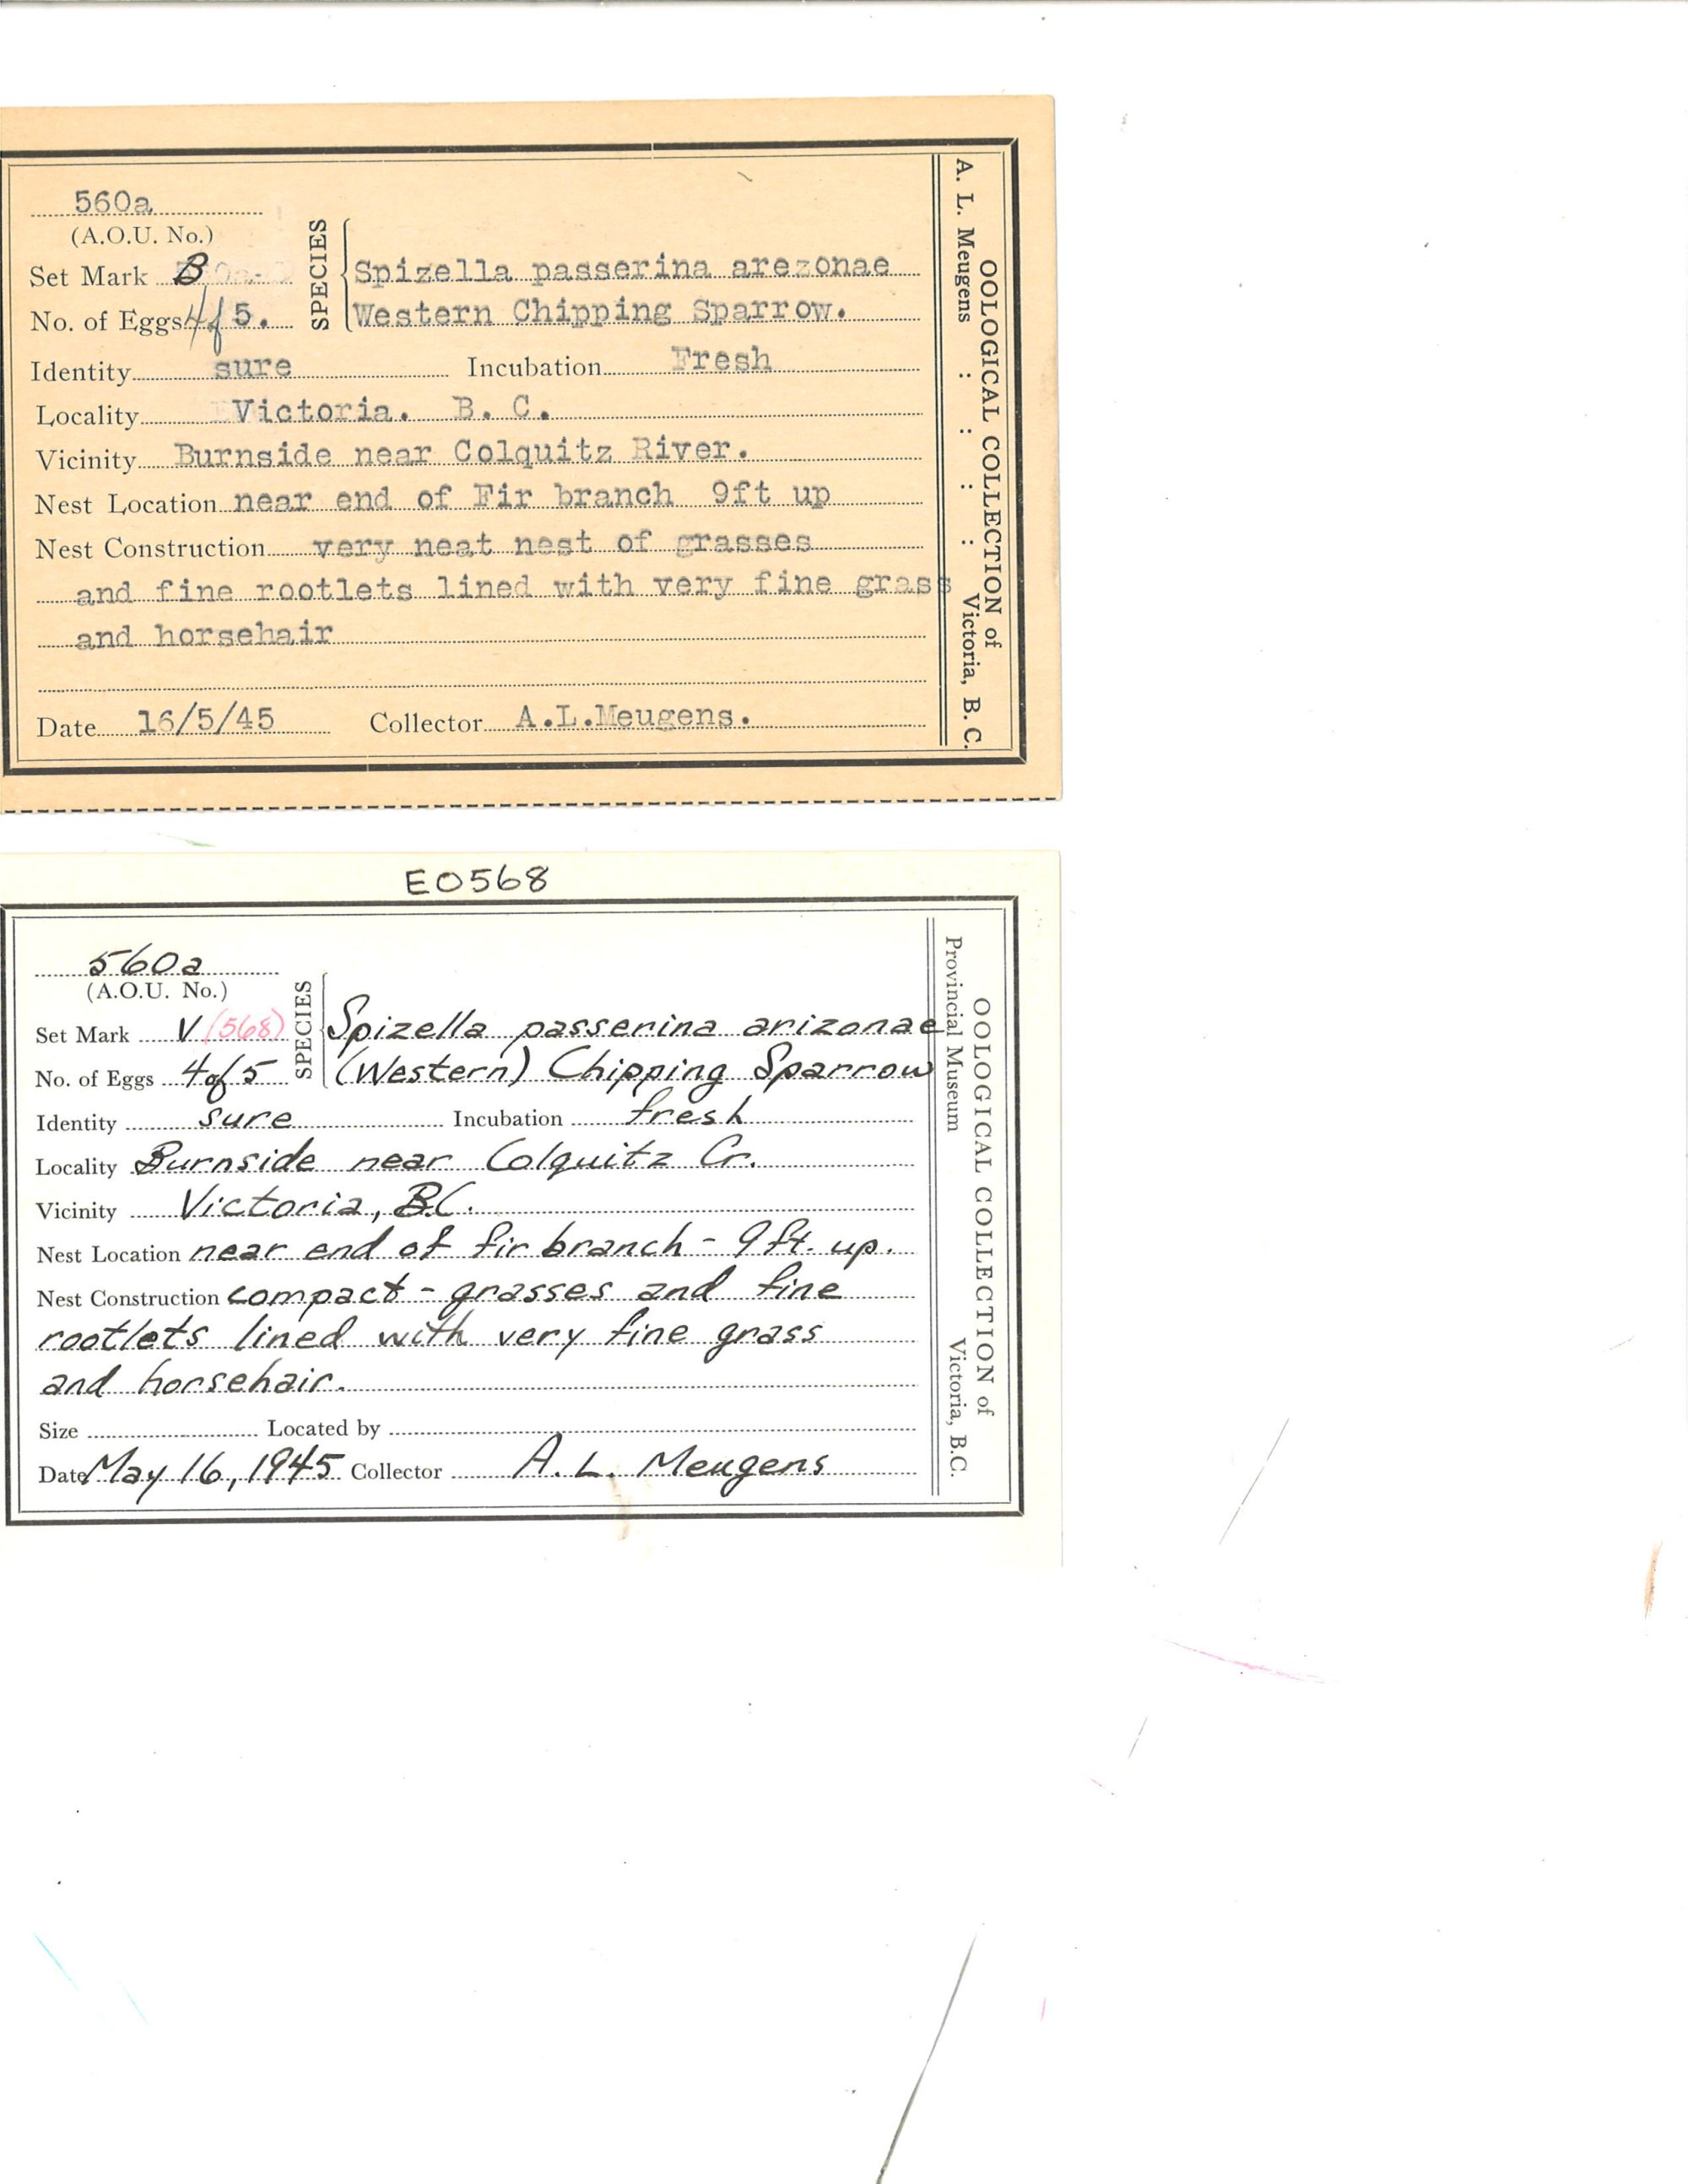 560a
(A.O.U. No.)
Set Mark B
No. of Eggs 4 of 5.
SPECIES
Spizella passerina arezonae
Western Chipping Sparrow.
Identity sure Incubation Fresh
Locality Victoria. B. C.
Vicinity Burnside near Colquitz River.
Nest Location near end of Fir branch 9ft up
Nest Construction very neat nest of grasses
and fine rootlets lined with very fine grass
and horsehair
Date 16/5/45 Collector A.L.Meugens.
OOLOGICAL COLLECTION of
A. L. Meugens : : : : Victoria, B.C.
E0568
560a
(A.O.U. No.)
Set Mark V (568)
No. of Eggs 4 of 5
SPECIES
Spizella passerina arizonae
(Western) Chipping Sparrow
Identity sure Incubation fresh
Locality Burnside near Colquitz Cr.
Vicinity Victoria, B.C.
Nest Location near end of fir branch - 9 ft. up.
Nest Construction compact - grasses and fine
rootlets lined with very fine grass
and horsehair.
Size Located by
Date May 16, 1945 Collector A. L. Meugens
OOLOGICAL COLLECTION of
Provincial Museum Victoria, B.C.